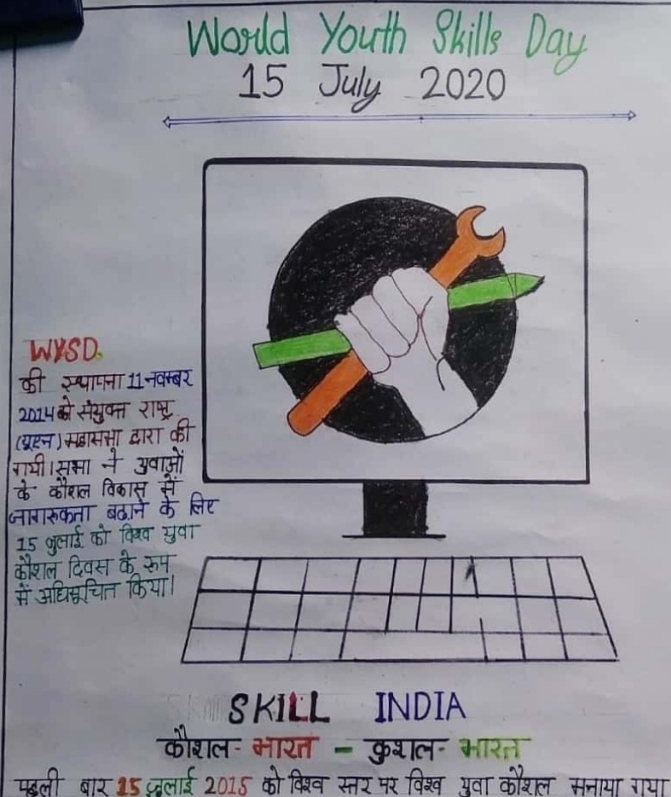 World Youth Skills Day
15 July 2020
WYSD.
की स्थापना 11 नवम्बर
2014 को संयुक्त राष्ट्र
(यूएन) महासभा द्वारा की
गयी। सभा ने युवाओं
के कौशल विकास में
जागरूकता बढ़ाने के लिए
15 जुलाई को विश्व युवा
कौशल दिवस के रूप
में अधिसूचित किया।
SKILL INDIA
कौशल - भारत - कुशल - भारत
पहली बार 15 जुलाई 2015 को विश्व स्तर पर विश्व युवा कौशल मनाया गया